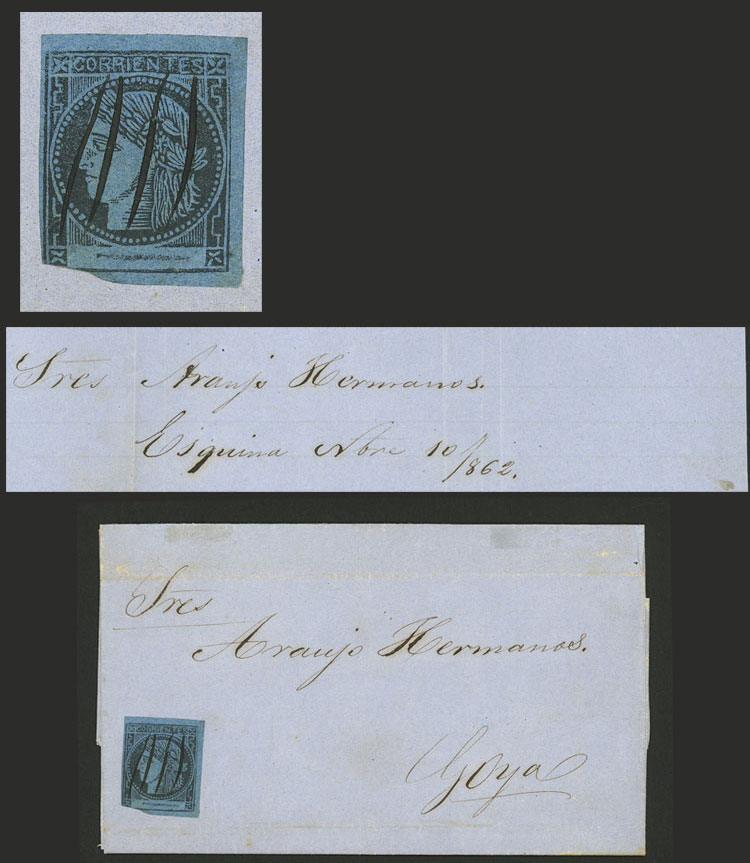 CORRIENTES
Sres Araujo Hermanos.
Esquina Nbre 10/862.
Sres
Araujo Hermanos.
Goya
CORRIENTES